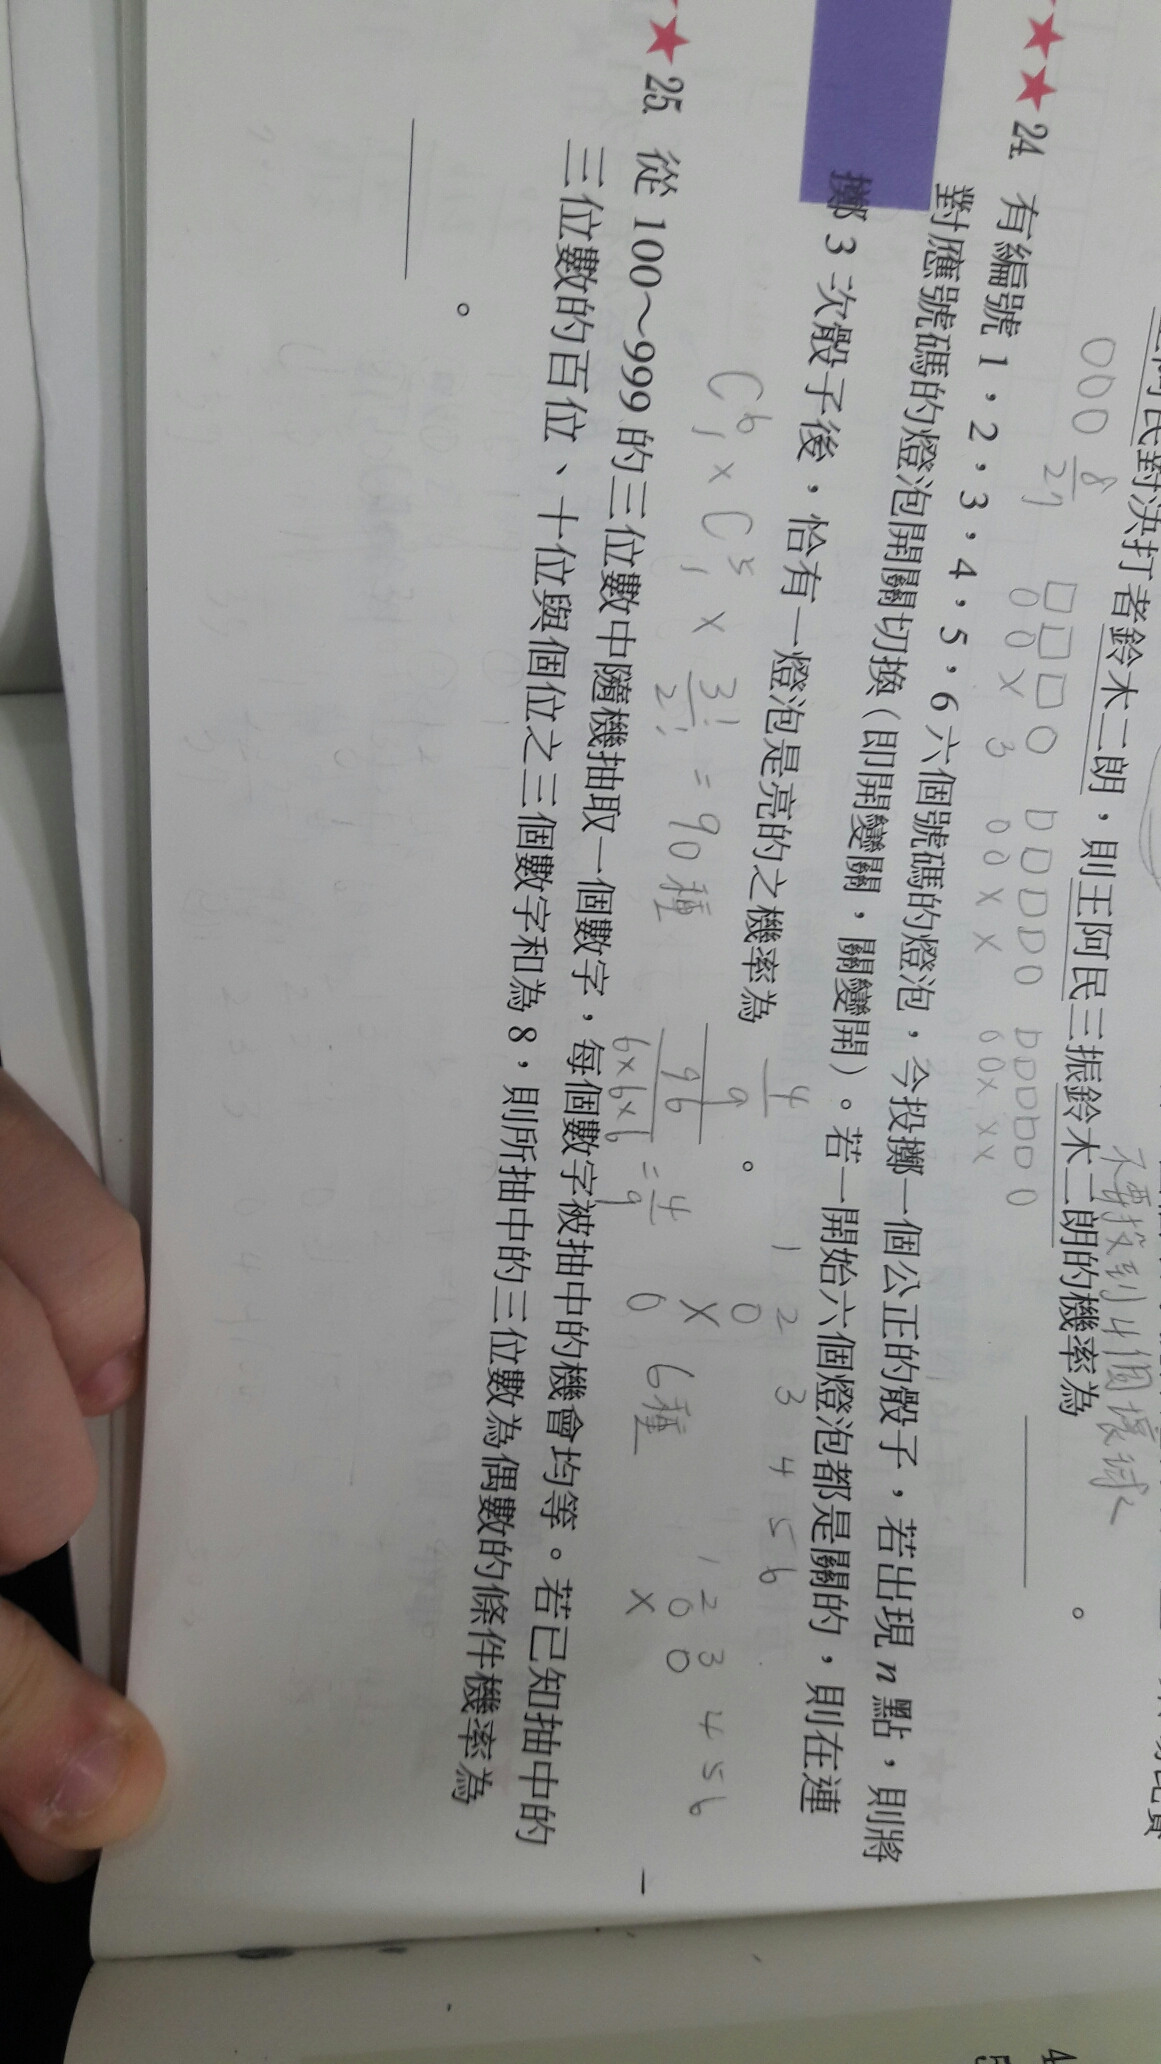 阿民對決打者鈴木二朗，則王阿民三振鈴木二朗的機率為
。
不需投到4個壞球
000 8/27
□□□0
00X 3
□□□□0
00XX
□□□□□0
00XXX
24. 有編號 1，2，3，4，5，6 六個號碼的燈泡，今投擲一個公正的骰子，若出現 n 點，則將
對應號碼的燈泡開關切換（即開變關，關變開）。若一開始六個燈泡都是關的，則在連
擲 3 次骰子後，恰有一燈泡是亮的之機率為 4/9 。
C⁶₁ × C⁵₁ × 3!/2! = 90種
96/6×6×6 = 4/9
1 2 3 4 5 6
0
X
0 6種
1 2 3 4 5 6
0 0
X
25. 從 100～999 的三位數中隨機抽取一個數字，每個數字被抽中的機會均等。若已知抽中的
三位數的百位、十位與個位之三個數字和為 8，則所抽中的三位數為偶數的條件機率為
。